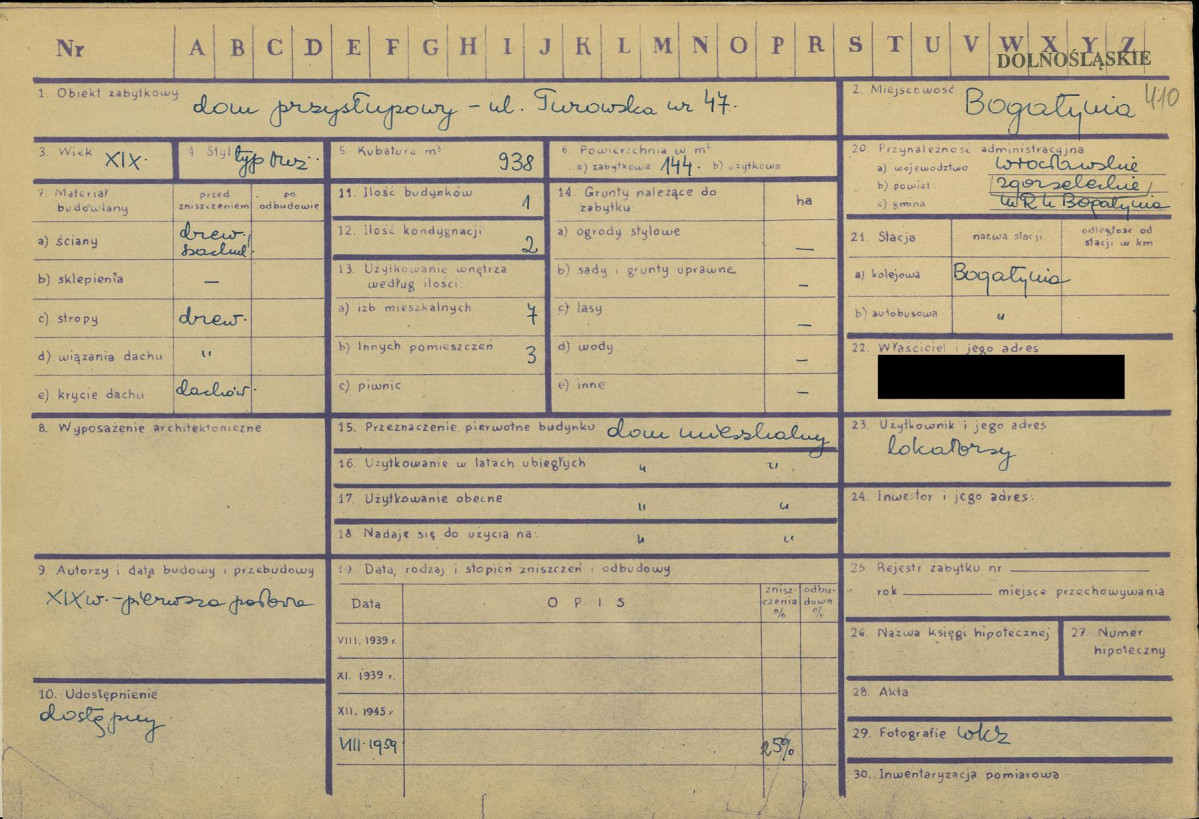 Nr A B C D E F G H I J K L M N O P R S T U V W X Y Z
DOLNOŚLĄSKIE
410
1. Obiekt zabytkowy dom przysłupowy – ul. Turowska nr 47.
2. Miejscowość Bogatynia
3. Wiek XIX.
4. Styl typ łuż.
5. Kubatura m³ 938
6. Powierzchnia w m²
a) zabytkowa 144. b) użytkowa
7. Materiał budowlany
przed zniszczeniem
po odbudowie
a) ściany drew. szachul.
b) sklepienia —
c) stropy drew.
d) wiązania dachu "
e) krycie dachu dachów.
8. Wyposażenie architektoniczne
9. Autorzy i data budowy i przebudowy
XIX w. – pierwsza połowa
10. Udostępnienie
dostępny
11. Ilość budynków 1
12. Ilość kondygnacji 2
13. Użytkowanie wnętrza według ilości:
a) izb mieszkalnych 7
b) Innych pomieszczeń 3
c) piwnic
14. Grunty należące do zabytku:
ha
a) ogrody stylowe —
b) sady i grunty uprawne –
c) lasy –
d) wody –
e) inne –
15. Przeznaczenie pierwotne budynku dom mieszkalny
16. Użytkowanie w latach ubiegłych " "
17. Użytkowanie obecne " "
18. Nadaje się do użycia na: " "
19. Data, rodzaj i stopień zniszczeń i odbudowy
Data
OPIS
znisz-czenia %
odbu-dowa %
VIII. 1939 r.
XI. 1939 r.
XII. 1945 r
VIII. 1959 25%
20. Przynależność administracyjna
a) województwo wrocławskie
b) powiat zgorzeleckie,
c) gmina M.R.N. Bogatynia
21. Stacja
nazwa stacji
odległość od stacji w km
a) kolejowa Bogatynia
b) autobusowa "
22. Właściciel i jego adres
23. Użytkownik i jego adres
lokatorzy
24. Inwestor i jego adres:
25. Rejestr zabytku nr
rok miejsce przechowywania
26. Nazwa księgi hipotecznej
27. Numer hipoteczny
28. Akta
29. Fotografie WKZ
30. Inwentaryzacja pomiarowa